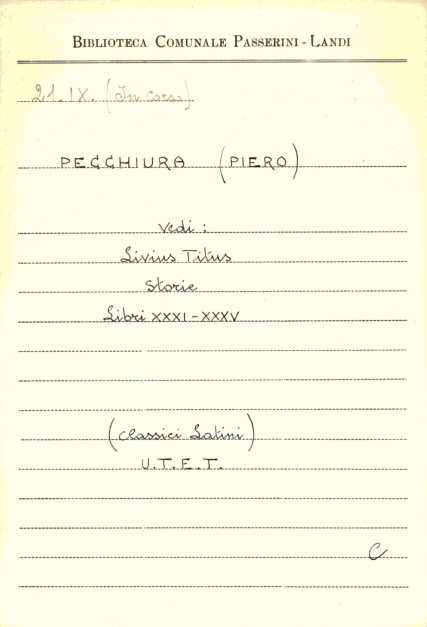 BIBLIOTECA COMUNALE PASSERINI - LANDI
21.IX. (In corso)
PECCHIURA (PIERO)
Vedi :
Livius Titus
Storie
Libri XXXI - XXXV
(Classici Latini)
U.T.E.T.
C